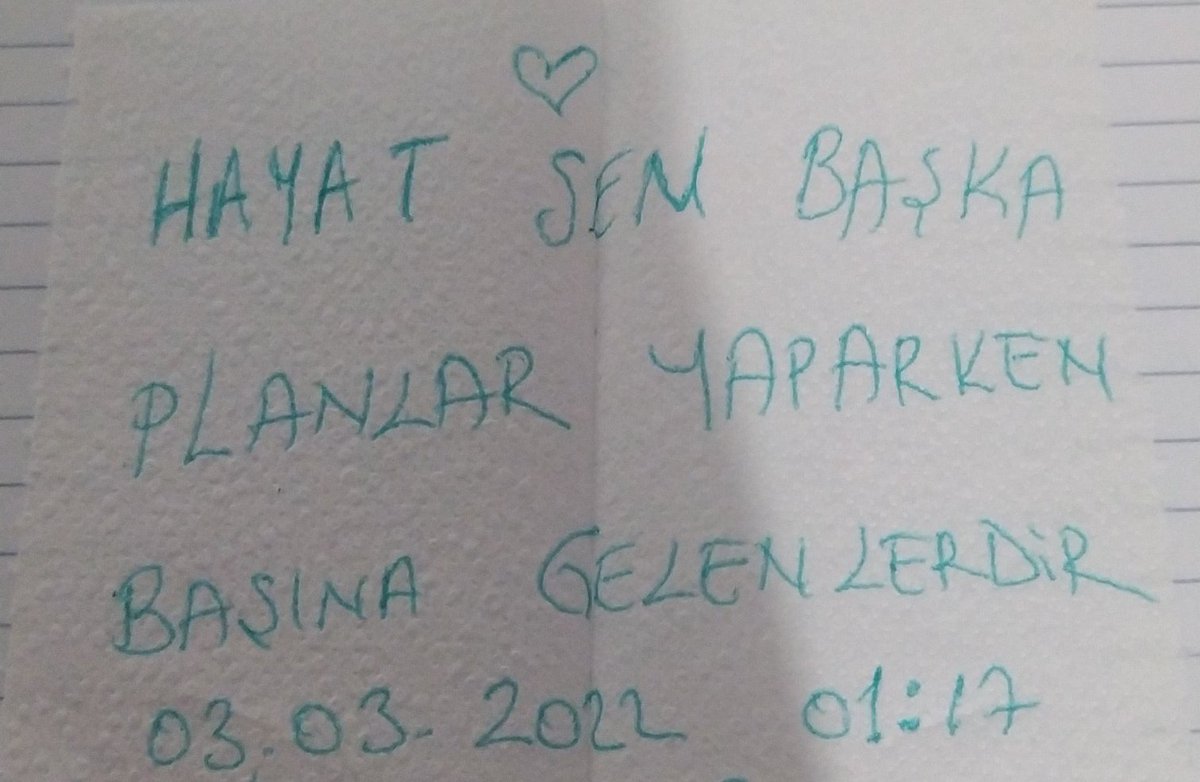 HAYAT SEN BAŞKA
PLANLAR YAPARKEN
BAŞINA GELENLERDİR
03.03.2022 01:17